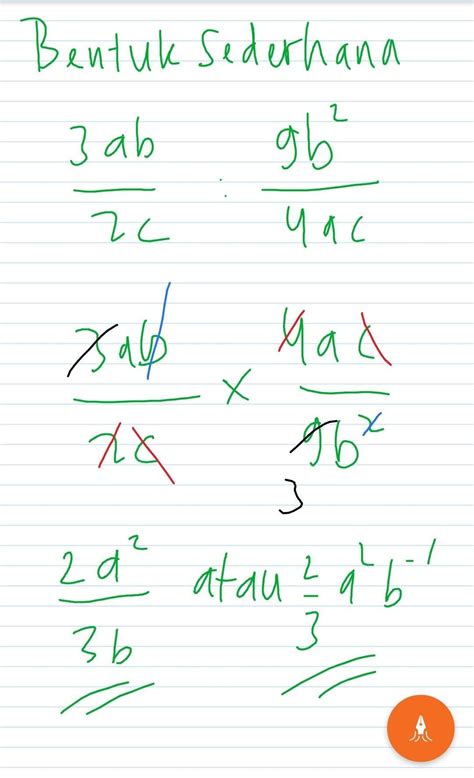 Bentuk Sederhana
3ab/2c : 9b²/4ac
3ab/2c × 4ac/9b²
3
2a²/3b atau 2/3 a²b⁻¹